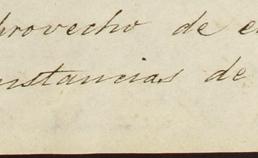 provecho de e
nstancias de